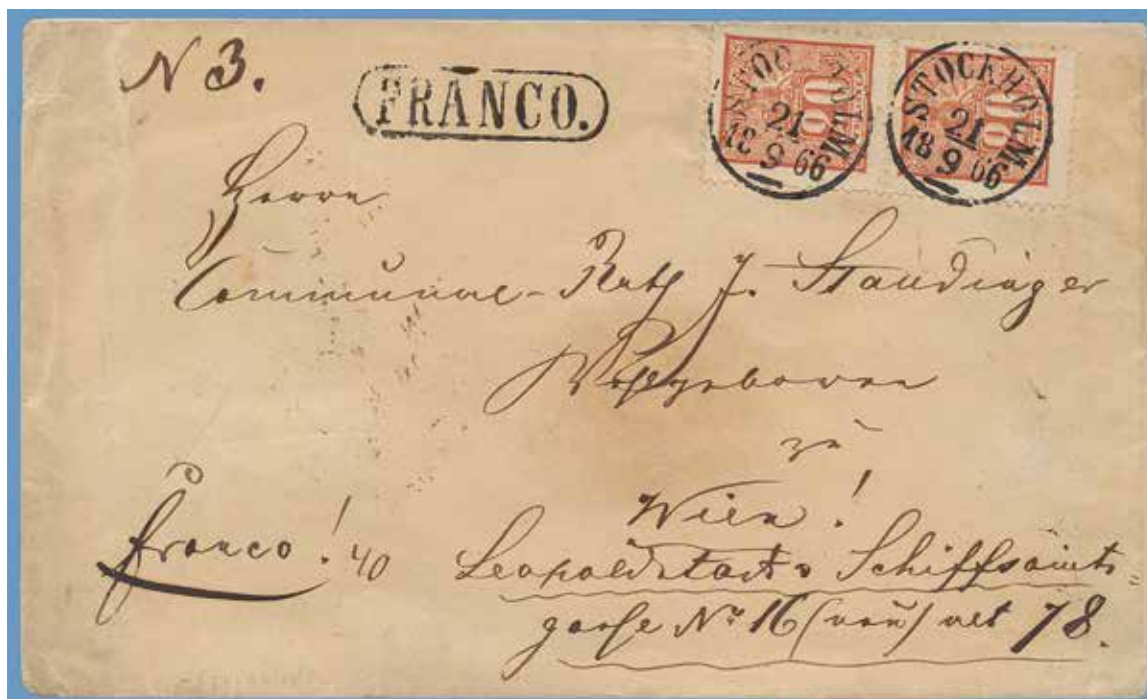 N 3.
FRANCO.
STOCKHOLM
21
9
18 66
STOCKHOLM
21
9
18 66
Herrn
Communal-Rath J. Staudinger
Wohlgeboren
zu
Wien!
franco! 40
Leopoldstadt, Schiffsamts
gasse No 16 (neu) alt 78.